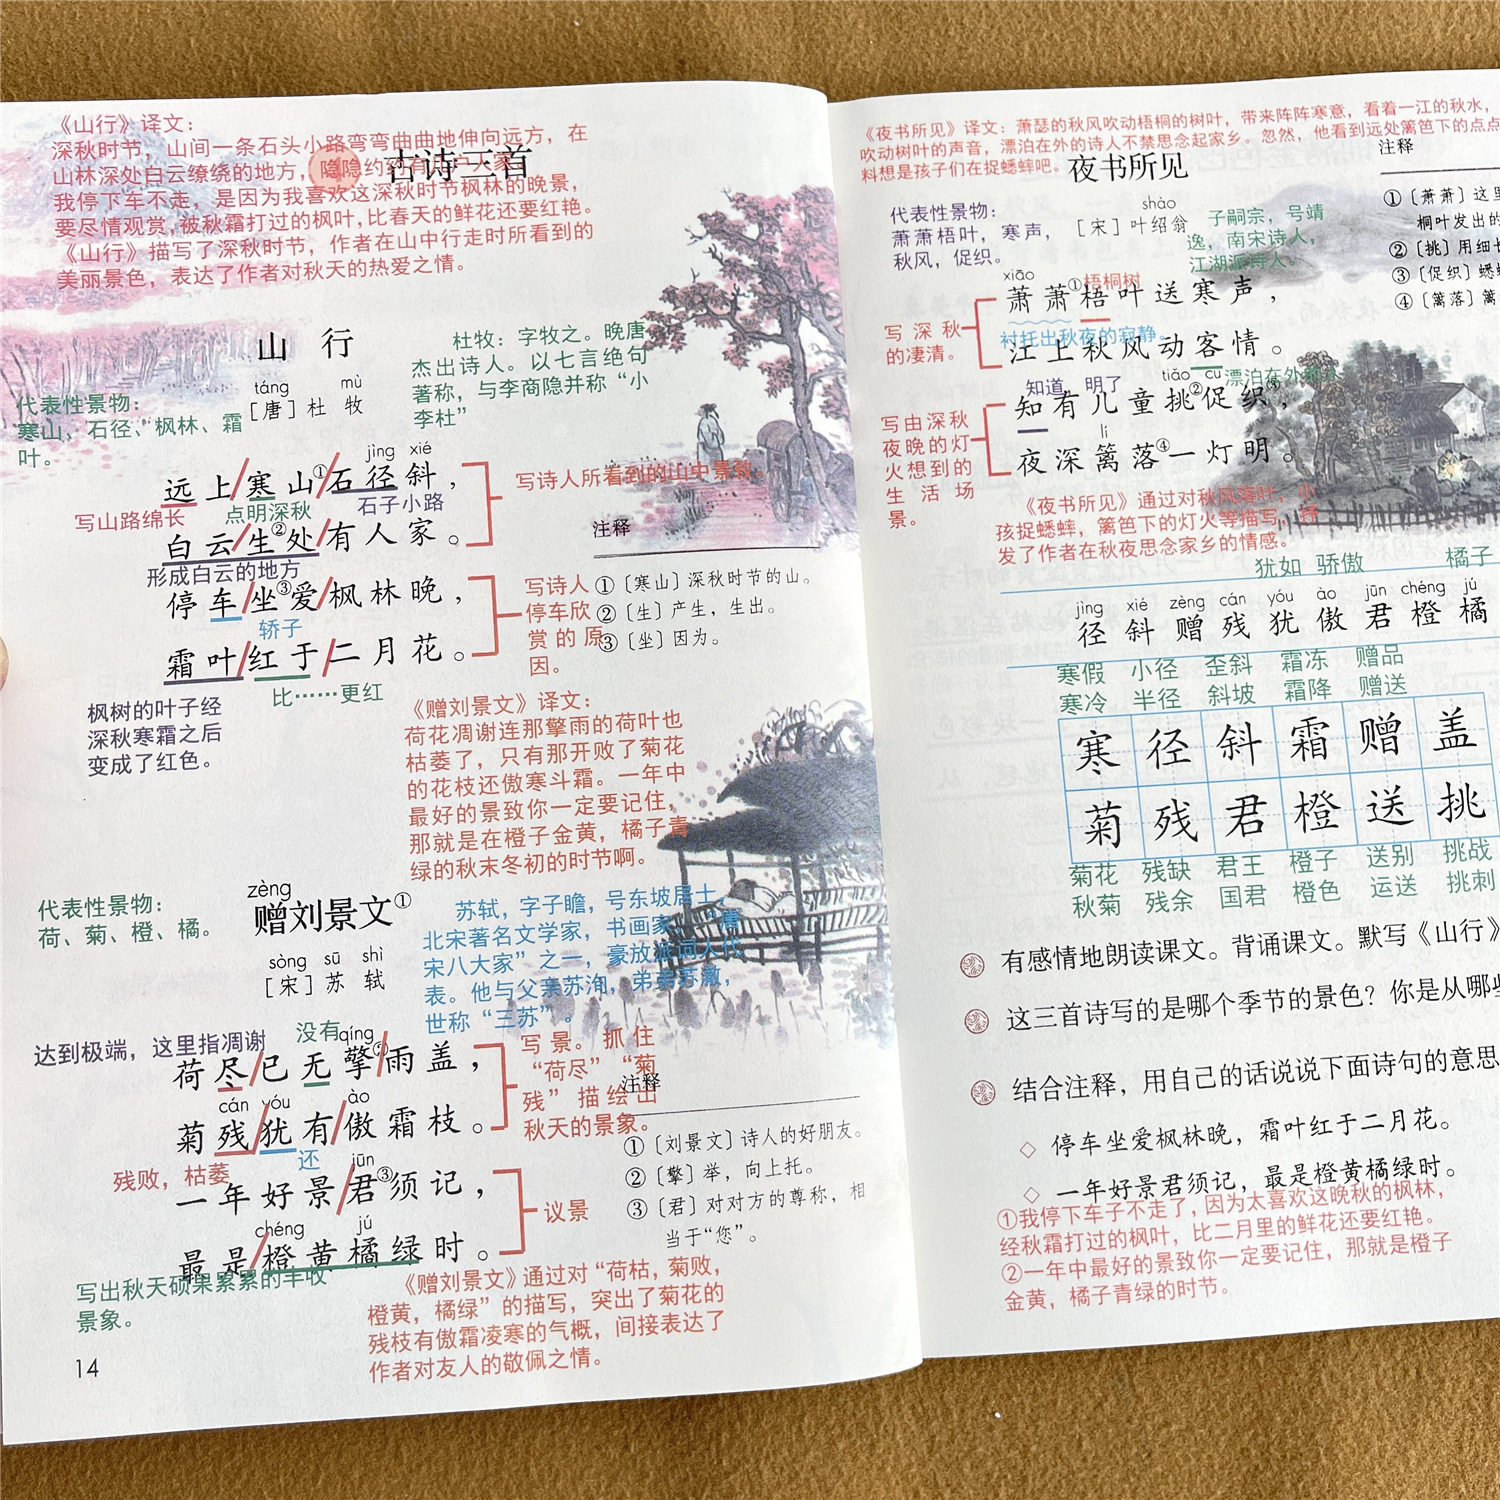 《山行》译文：
深秋时节，山间一条石头小路弯弯曲曲地伸向远方，在
山林深处白云缭绕的地方，隐隐约约有
古诗三首
我停下车不走，是因为我喜欢这深秋时节枫林的晚景，
要尽情观赏，被秋霜打过的枫叶，比春天的鲜花还要红艳。
《山行》描写了深秋时节，作者在山中行走时所看到的
美丽景色，表达了作者对秋天的热爱之情。
山行
táng mù
［唐］杜牧
杜牧：字牧之。晚唐
杰出诗人。以七言绝句
著称，与李商隐并称“小
李杜”
代表性景物：
寒山、石径、枫林、霜
叶。
jìng xié
远上/寒山①/石径斜，
写山路绵长 点明深秋 石子小路
白云/生②处/有人家。
形成白云的地方
写诗人所看到的山中景物。
停车/坐③爱/枫林晚，
轿子
霜叶/红于/二月花。
比……更红
写诗人
停车欣
赏的原
因。
枫树的叶子经
深秋寒霜之后
变成了红色。
注释
①〔寒山〕深秋时节的山。
②〔生〕产生，生出。
③〔坐〕因为。
《赠刘景文》译文：
荷花凋谢连那擎雨的荷叶也
枯萎了，只有那开败了菊花
的花枝还傲寒斗霜。一年中
最好的景致你一定要记住，
那就是在橙子金黄，橘子青
绿的秋末冬初的时节啊。
代表性景物：
荷、菊、橙、橘。
zèng
赠刘景文①
sòng sū shì
［宋］苏轼
苏轼，字子瞻，号东坡居士，
北宋著名文学家，书画家，“唐
宋八大家”之一，豪放派词人代
表。他与父亲苏洵，弟弟苏澈，
世称“三苏”。
达到极端，这里指凋谢 没有 qíng
荷尽/已无擎②/雨盖，
cán yóu ào
菊残/犹有/傲霜枝。
残败，枯萎 还
写景。抓住
“荷尽”“菊
残”描绘出
秋天的景象。
jūn
一年好景/君③须记，
chéng jú
最是/橙黄橘绿时。
议景
写出秋天硕果累累的丰收
景象。
注释
①〔刘景文〕诗人的好朋友。
②〔擎〕举，向上托。
③〔君〕对对方的尊称，相
当于“您”。
《赠刘景文》通过对“荷枯，菊败，
橙黄，橘绿”的描写，突出了菊花的
残枝有傲霜凌寒的气概，间接表达了
作者对友人的敬佩之情。
14
《夜书所见》译文：萧瑟的秋风吹动梧桐的树叶，带来阵阵寒意，看着一江的秋水，
吹动树叶的声音，漂泊在外的诗人不禁思念起家乡。忽然，他看到远处篱笆下的点点
料想是孩子们在捉蟋蟀吧。
夜书所见
shào
［宋］叶绍翁
代表性景物：
萧萧梧叶，寒声，
秋风，促织。
子嗣宗，号靖
逸，南宋诗人，
江湖派诗人。
注释
①〔萧萧〕这里
桐叶发出的
②〔挑〕用细长
③〔促织〕蟋蟀
④〔篱落〕篱
xiāo
梧桐树
萧萧①梧叶送寒声，
衬托出秋夜的寂静。
江上秋风动客情。
写深秋
的凄清。
知道，明了 tiāo cù 漂泊在外
知有儿童挑②促织③，
lí
夜深篱落④一灯明。
写由深秋
夜晚的灯
火想到的
生活场
景。
《夜书所见》通过对秋风落叶，小
孩捉蟋蟀，篱笆下的灯火等描写，抒
发了作者在秋夜思念家乡的情感。
犹如 骄傲 橘子
jìng xié zèng cán yóu ào jūn chéng jú
径斜赠残犹傲君橙橘
寒假 小径 歪斜 霜冻 赠品
寒冷 半径 斜坡 霜降 赠送
寒径斜霜赠盖
菊残君橙送挑
菊花 残缺 君王 橙子 送别 挑战
秋菊 残余 国君 橙色 运送 挑刺
有感情地朗读课文。背诵课文。默写《山行》
这三首诗写的是哪个季节的景色？你是从哪些
结合注释，用自己的话说说下面诗句的意思
◇ 停车坐爱枫林晚，霜叶红于二月花。
◇ 一年好景君须记，最是橙黄橘绿时。
①我停下车子不走了，因为太喜欢这晚秋的枫林，
经秋霜打过的枫叶，比二月里的鲜花还要红艳。
②一年中最好的景致你一定要记住，那就是橙子
金黄，橘子青绿的时节。